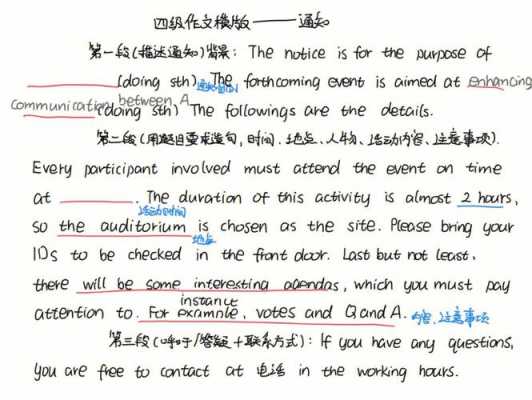 四级作文模版——通知
第一段(描述通知)背景: The notice is for the purpose of
(doing sth) The forthcoming event is aimed at enhancing
communication between A (doing sth) The followings are the details.
第二段(用题目要求造句,时间、地点、人物、活动内容、注意事项).
Every participant involved must attend the event on time
at ______. The duration of this activity is almost 2 hours,
活动时间
so the auditorium is chosen as the site. Please bring your
地点
IDs to be checked in the front door. Last but not least,
there will be some interesting agendas, which you must pay
instance
attention to. For example, votes and Q and A. 内容、注意事项
第三段(呼吁/答疑+联系方式): If you have any questions,
you are free to contact at 电话 in the working hours.